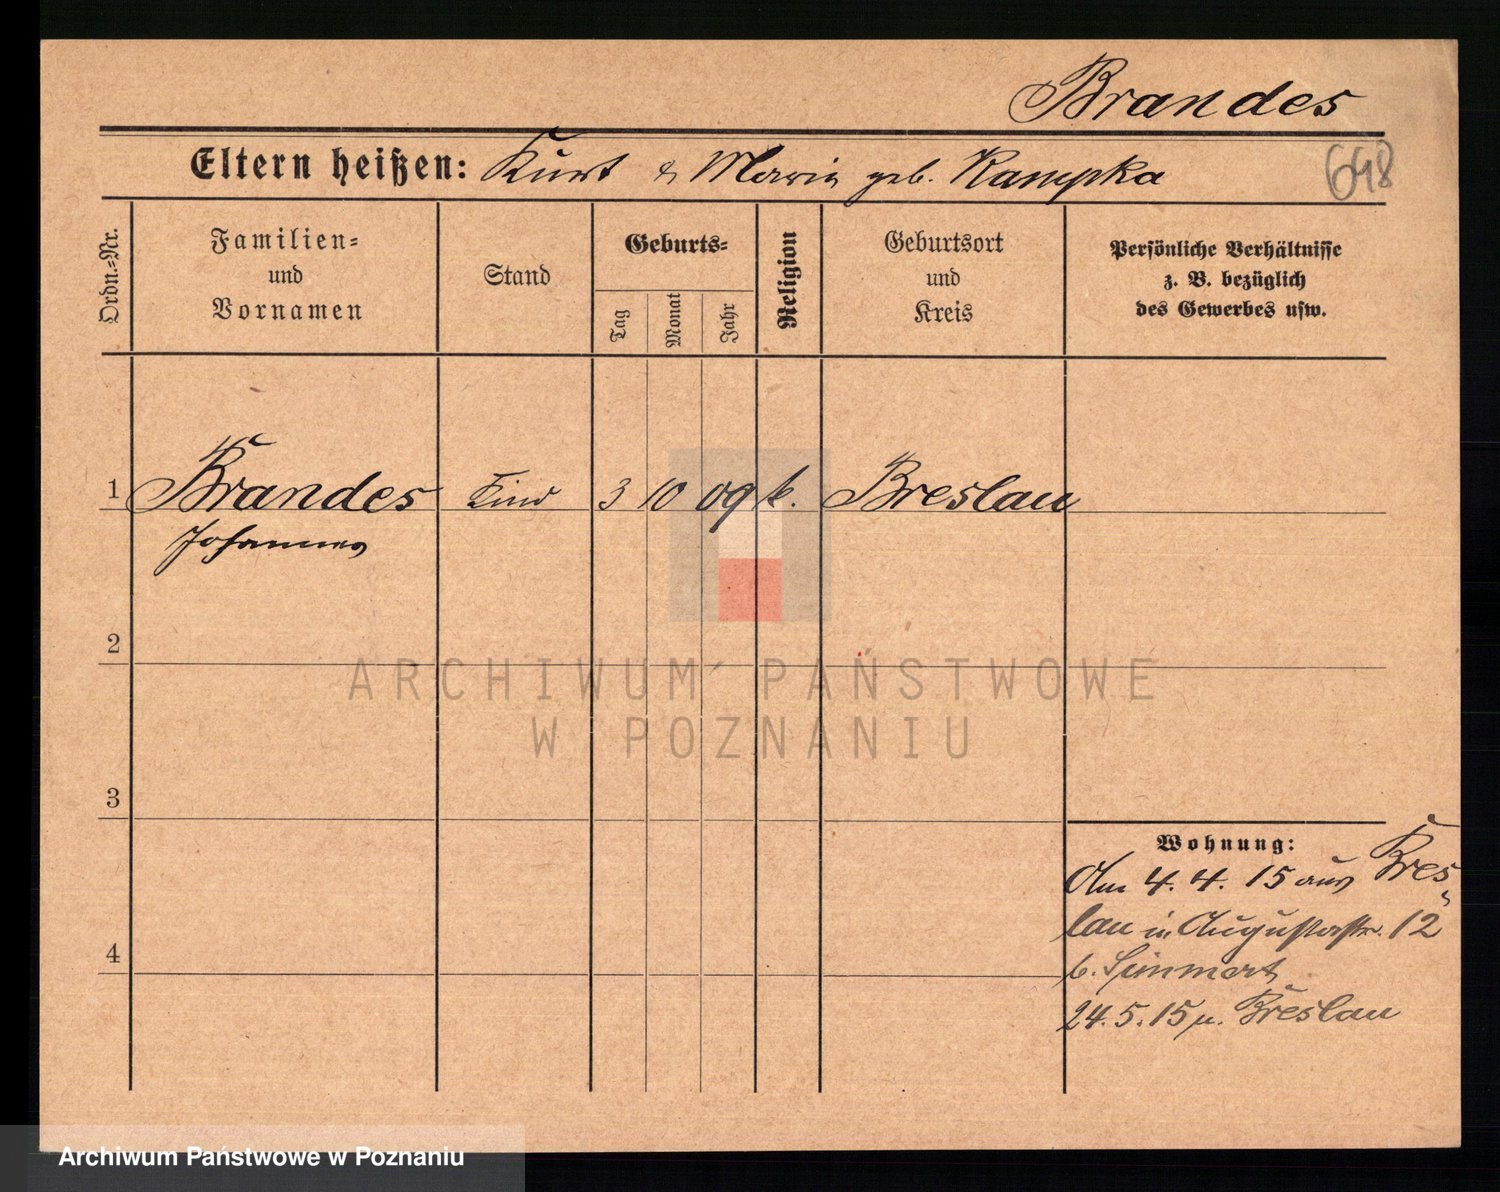 Brandes
Eltern heißen: Kurt & Maria geb. Kampka
648
Ordn.-Nr.
Familien-
und
Vornamen
Stand
Geburts-
Tag
Monat
Jahr
Religion
Geburtsort
und
Kreis
Persönliche Verhältnisse
z. B. bezüglich
des Gewerbes usw.
1 Brandes Kind 3 10 09 k. Breslau
Johannes
2
3
4
Wohnung:
Am 4. 4. 15 aus Bres-
lau in Augustastr. 12
b. Simmert
24. 5. 15 n. Breslau
ARCHIWUM PAŃSTWOWE
W POZNANIU
Archiwum Państwowe w Poznaniu